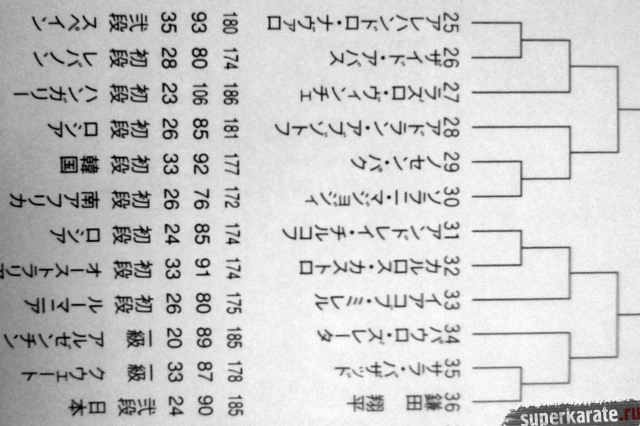 25 アレハンドロ・ナヴァロ 180 93 35 弐段 スペイン
26 ザイド・アバス 174 80 28 初段 レバノン
27 ラズロ・ヴィンチェ 186 106 23 初段 ハンガリー
28 アドラン・ 181 85 26 初段 ロシア
29 ノセン・パク 177 92 33 初段 韓国
30 172 76 26 初段 南アフリカ
31 アンドレイ・チルコフ 174 85 24 初段 ロシア
32 カルロス・カストロ 174 91 33 初段 オーストラリア
33 イアコブ・ミレル 175 80 26 初段 ルーマニア
34 パウロ・ズレータ 185 89 20 一級 アルゼンチン
35 サラ・ 178 87 33 一級 クウェート
36 鎌田 翔平 185 90 24 弐段 日本
superkarate.ru